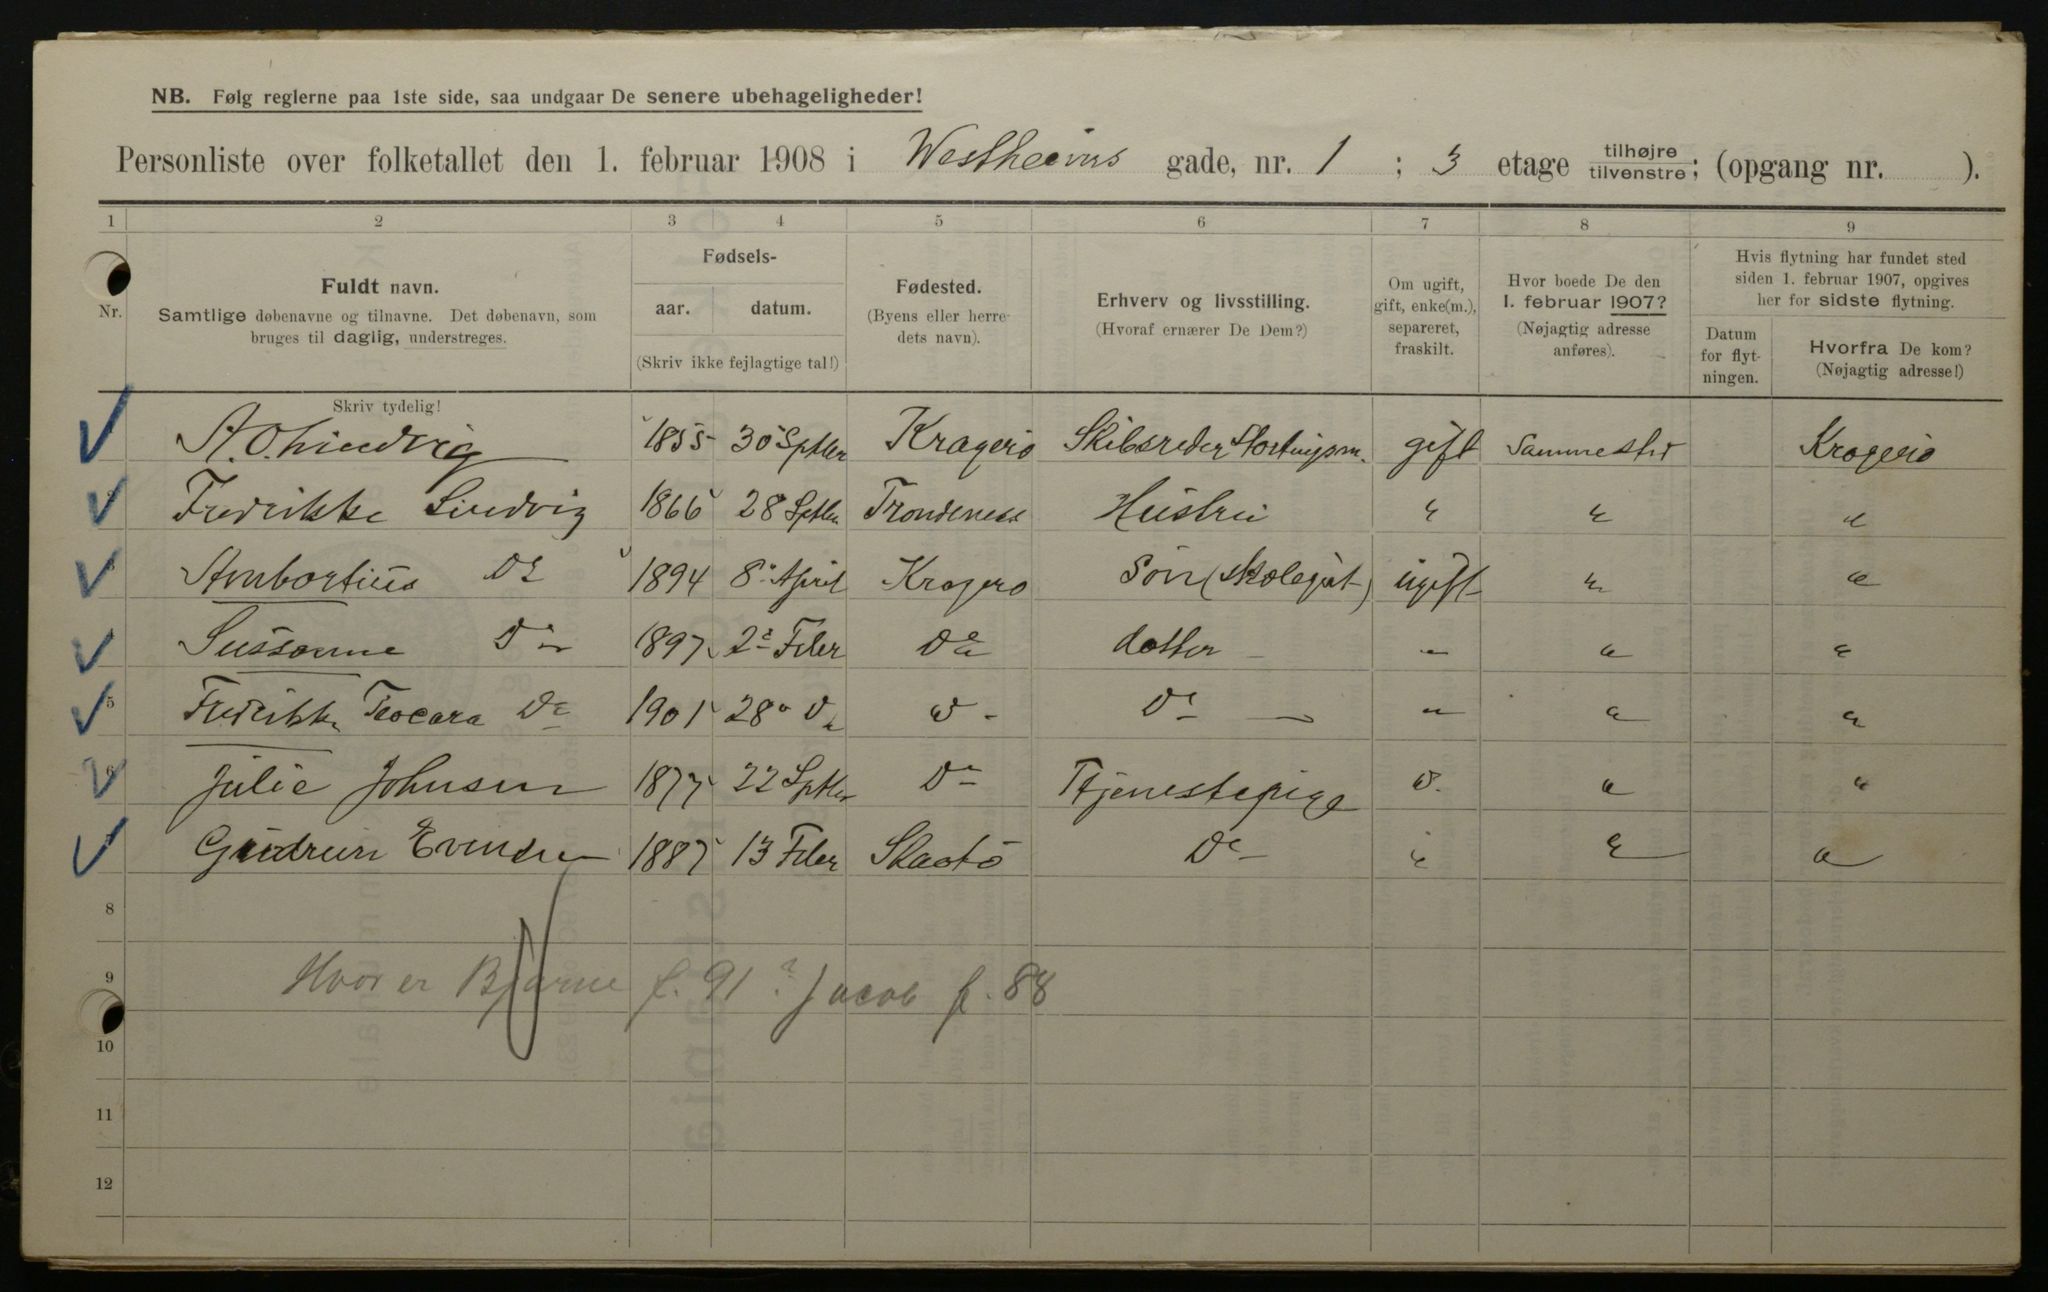 NB. Følg reglerne paa 1ste side, saa undgaar De senere ubehageligheder!
Personliste over folketallet den 1. februar 1908 i Westheims gade, nr. 1 ; 3 etage tilhøjre/tilvenstre; (opgang nr. ).
1 2 3 4 5 6 7 8 9
Nr.
Fuldt navn.
Samtlige døbenavne og tilnavne. Det døbenavn, som
bruges til daglig, understreges.
Skriv tydelig!
Fødsels-
aar. datum.
(Skriv ikke fejlagtige tal!)
Fødested.
(Byens eller herre-
dets navn).
Erhverv og livsstilling.
(Hvoraf ernærer De Dem?)
Om ugift,
gift, enke(m.),
separeret,
fraskilt.
Hvor boede De den
1. februar 1907?
(Nøjagtig adresse
anføres).
Hvis flytning har fundet sted
siden 1. februar 1907, opgives
her for sidste flytning.
Datum
for flyt-
ningen.
Hvorfra De kom?
(Nøjagtig adresse!)
A. O. Lindvig 1855 30 Sptbr Kragerø Skibsreder Stortingsm. gift Sammested Kragerø
2 Fredrikke Lindvig 1866 28 Sptbr Trondeness Hustru " " "
3 Ambortius Do 1894 8 April Kragerø Søn (skolegut) ugift " "
4 Sussanne Do 1897 2 Feber Do datter " " "
5 Fredrikke Teocara Do 1901 28 Do " Do " " "
6 Julie Johnsen 1877 22 Sptbr Do Tjenestepige " " "
7 Gudrun 1887 13 Feber Skaatø Do " " "
8
9 Hvor er Bjarne f. 91? Jacob f. 88
10
11
12